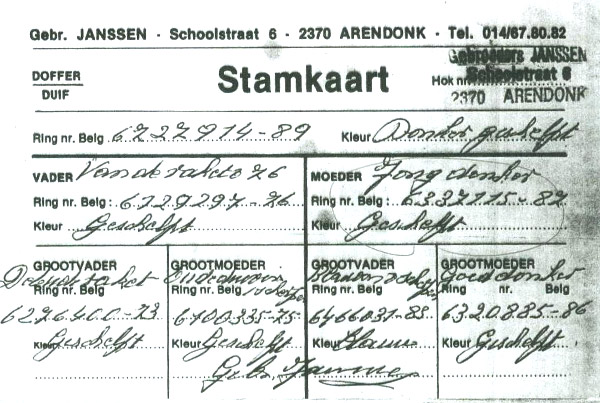 Gebr. JANSSEN - Schoolstraat 6 - 2370 ARENDONK - Tel. 014/67.80.82
DOFFER
DUIF
Stamkaart
Hok nr
Gebroeders JANSSEN
Schoolstraat 6
2370 ARENDONK
Ring nr. Belg 6727914-89 Kleur Donker geschelpt
VADER
Ring nr. Belg : 6129297-76
Kleur Geschelpt
MOEDER Jong donker
Ring nr. Belg : 6337115-82
Kleur Geschelpt
GROOTVADER
Ring nr. Belg
6276400-73
Kleur Geschelpt
GROOTMOEDER
Ring nr. Belg
6700335-75
Kleur Geschelpt
GROOTVADER
Ring nr. Belg
Kleur Blauw
GROOTMOEDER
Goed donker
Ring nr. Belg
6320885-86
Kleur Geschelpt
Gebr. Janssen